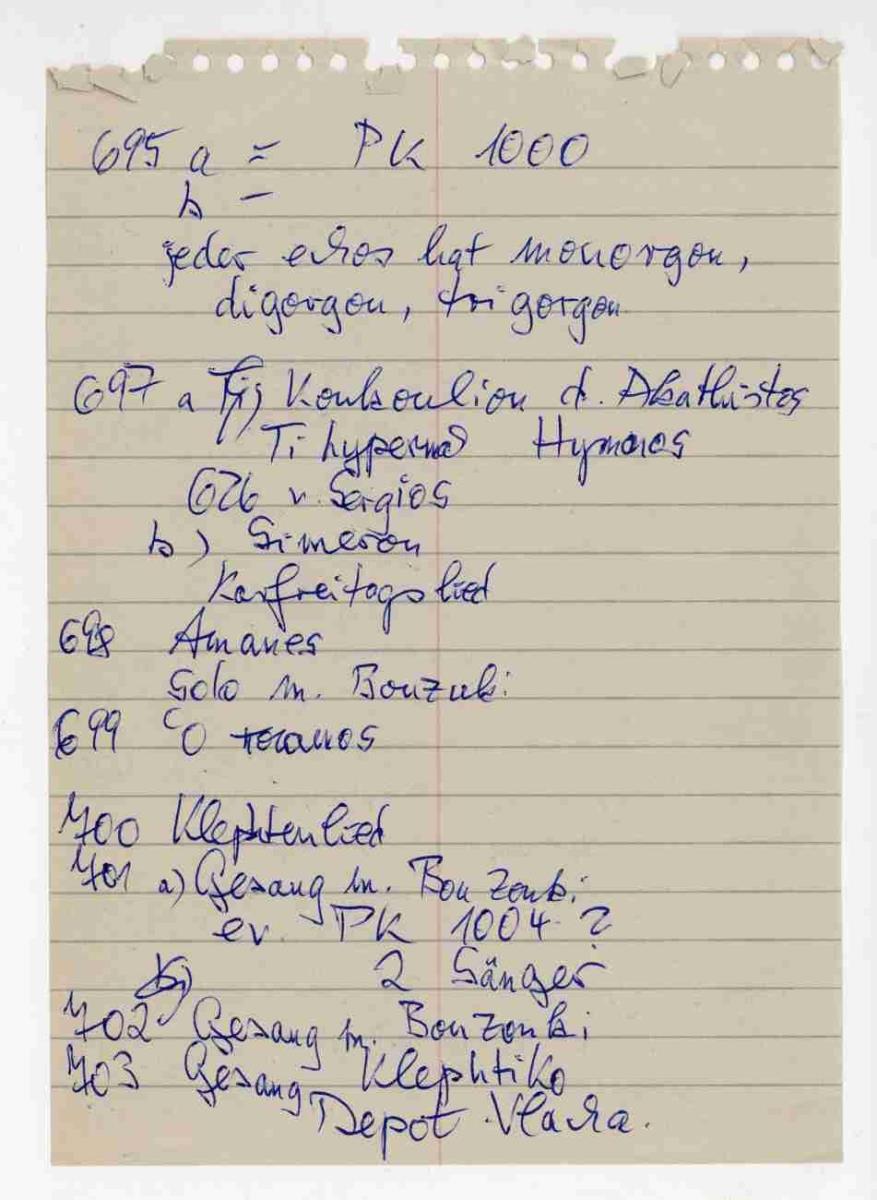 695 a = PK 1000
b –
jeder echos hat monorgon,
digorgon, trigorgon
697 a Koukoulion d. Akathistos
Ti hypermo Hymnos
626 v. Sergios
b) Simeron
Karfreitagslied
698 Amanes
Solo m. Bouzuki
699 O
700 Klephtenlied
701 a) Gesang m. Bouzouki
ev. PK 1004 ?
b) 2 Sänger
702 Gesang m. Bouzouki
703 Gesang Klephtiko
Depot Vlacha.